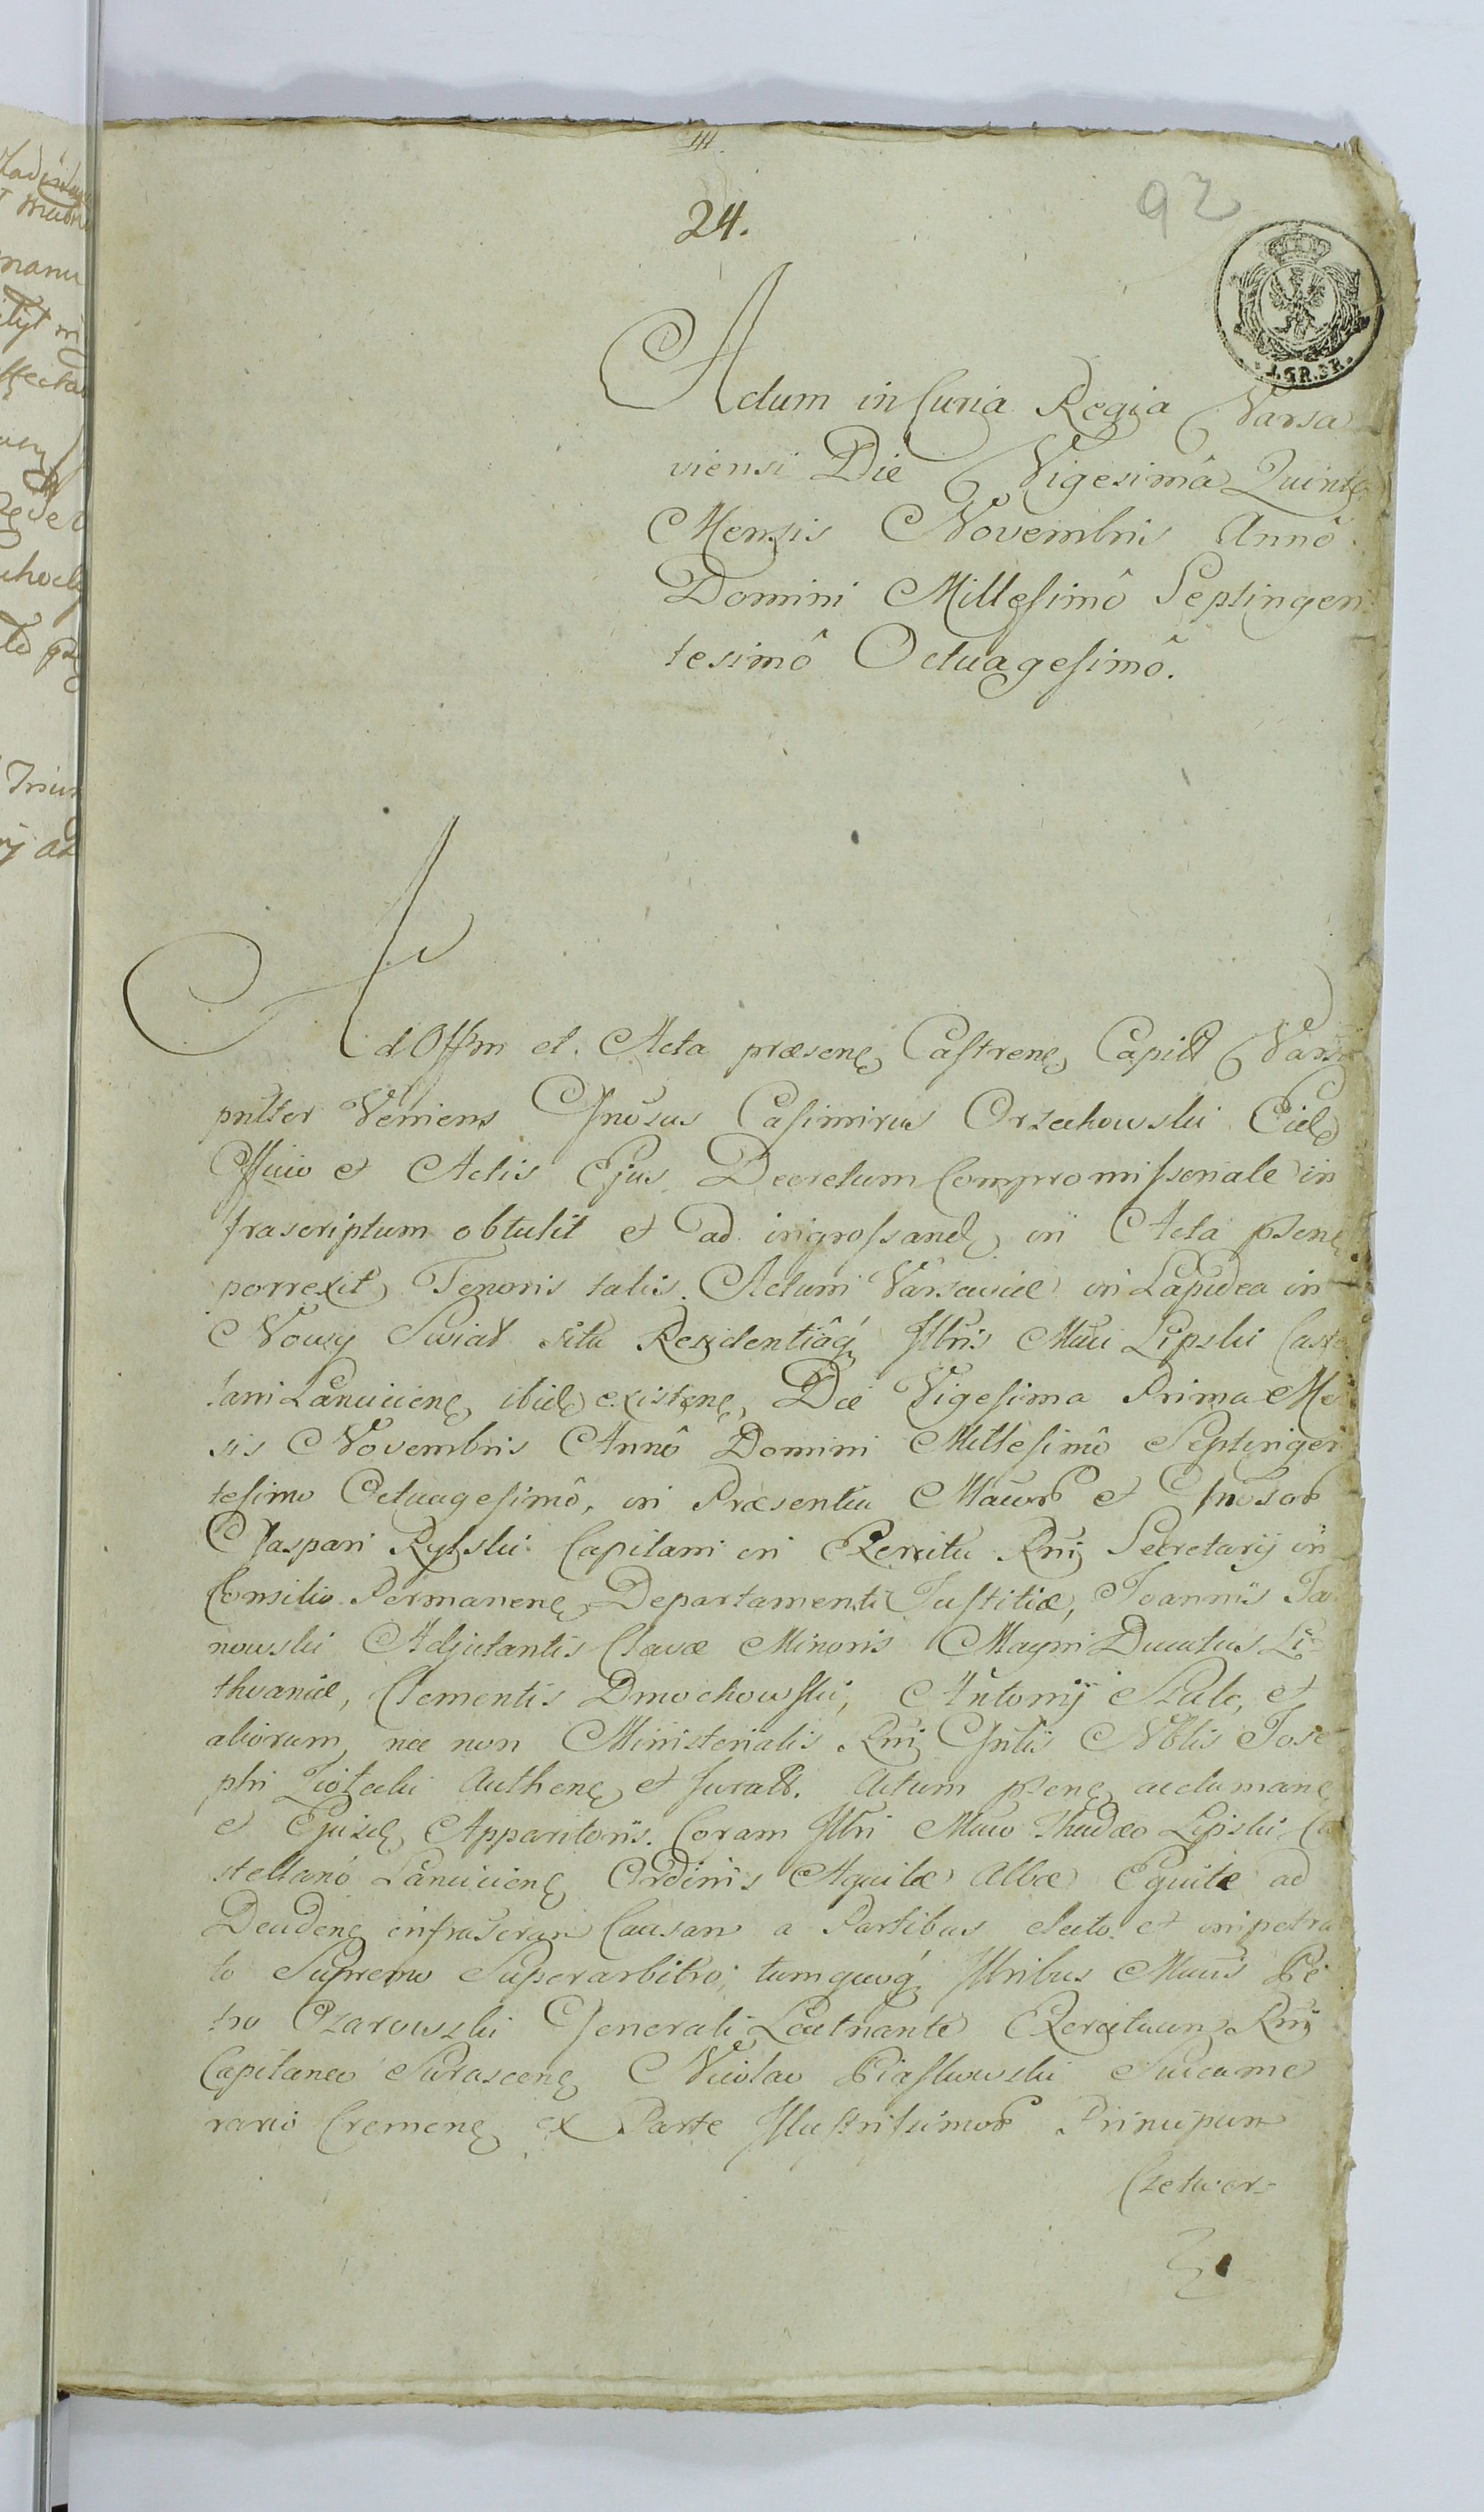 III.
24.
92
1.GR.SR.
Actum in Curia Regia Varsa
viensi Die Vigesimâ Quinta
Mensis Novembris Annô
Domini Millesimô Septingen
tesimô Octuagesimô.
Ad Offm et Acta præsenę Castrenę Capitł Varsa
pnłter Veniens Gnosus Casimirus Orzechowski Eidę
Officio et Actis Ejus Decretum Compromissoriale in
frascriptum obtulit et ad ingrossandę in Acta psenę
porrexit, Tenoris talis. Actum Varsaviæ in Lapidea in
Nowy Swiat sita Residentiâq́ Illris Mĩci Lipski Caste
lani Lanciciensę ibidę existenę, Die Vigesima Prima Men
sis Novembris Annô Domini Millesimô Septingen
tesimo Octuagesimô, in Præsentia Mãcor et Gnosor
Gaspari Rylski Capitani in Exercitu Rni Secretarij in
Consilio Permanenę Departamenti Justitiæ, Joannis Ta
nowski Adjutantis Clavæ Minoris Magni Ducatus Li
thvaniæ, Clementis Dmochowski, Antonij Szulc, et
aliorum, nec non Ministerialis Rni Gnlis Nblis Jose
phi authenę et Juratł. Actum psenę acclamanę
et Ejusdę Apparitoris. Coram Illri Mĩco Thadæo Lipski Ca
stellanó Lanciciensę Ordinis Aquilæ Albæ Equite ad
Decidenę infrascran Causam a Partibus electo et impetra
to Supremo Superarbitro; tum quoq́ Illribus Mĩcis Pe
tro Ożarowski Generali Leutnante Exercituum Rni
Capitaneo Surascenę Nicolao Piaskowski Succame
rario Cremenę ex Parte Illustrissimor Principum
Czetwer-